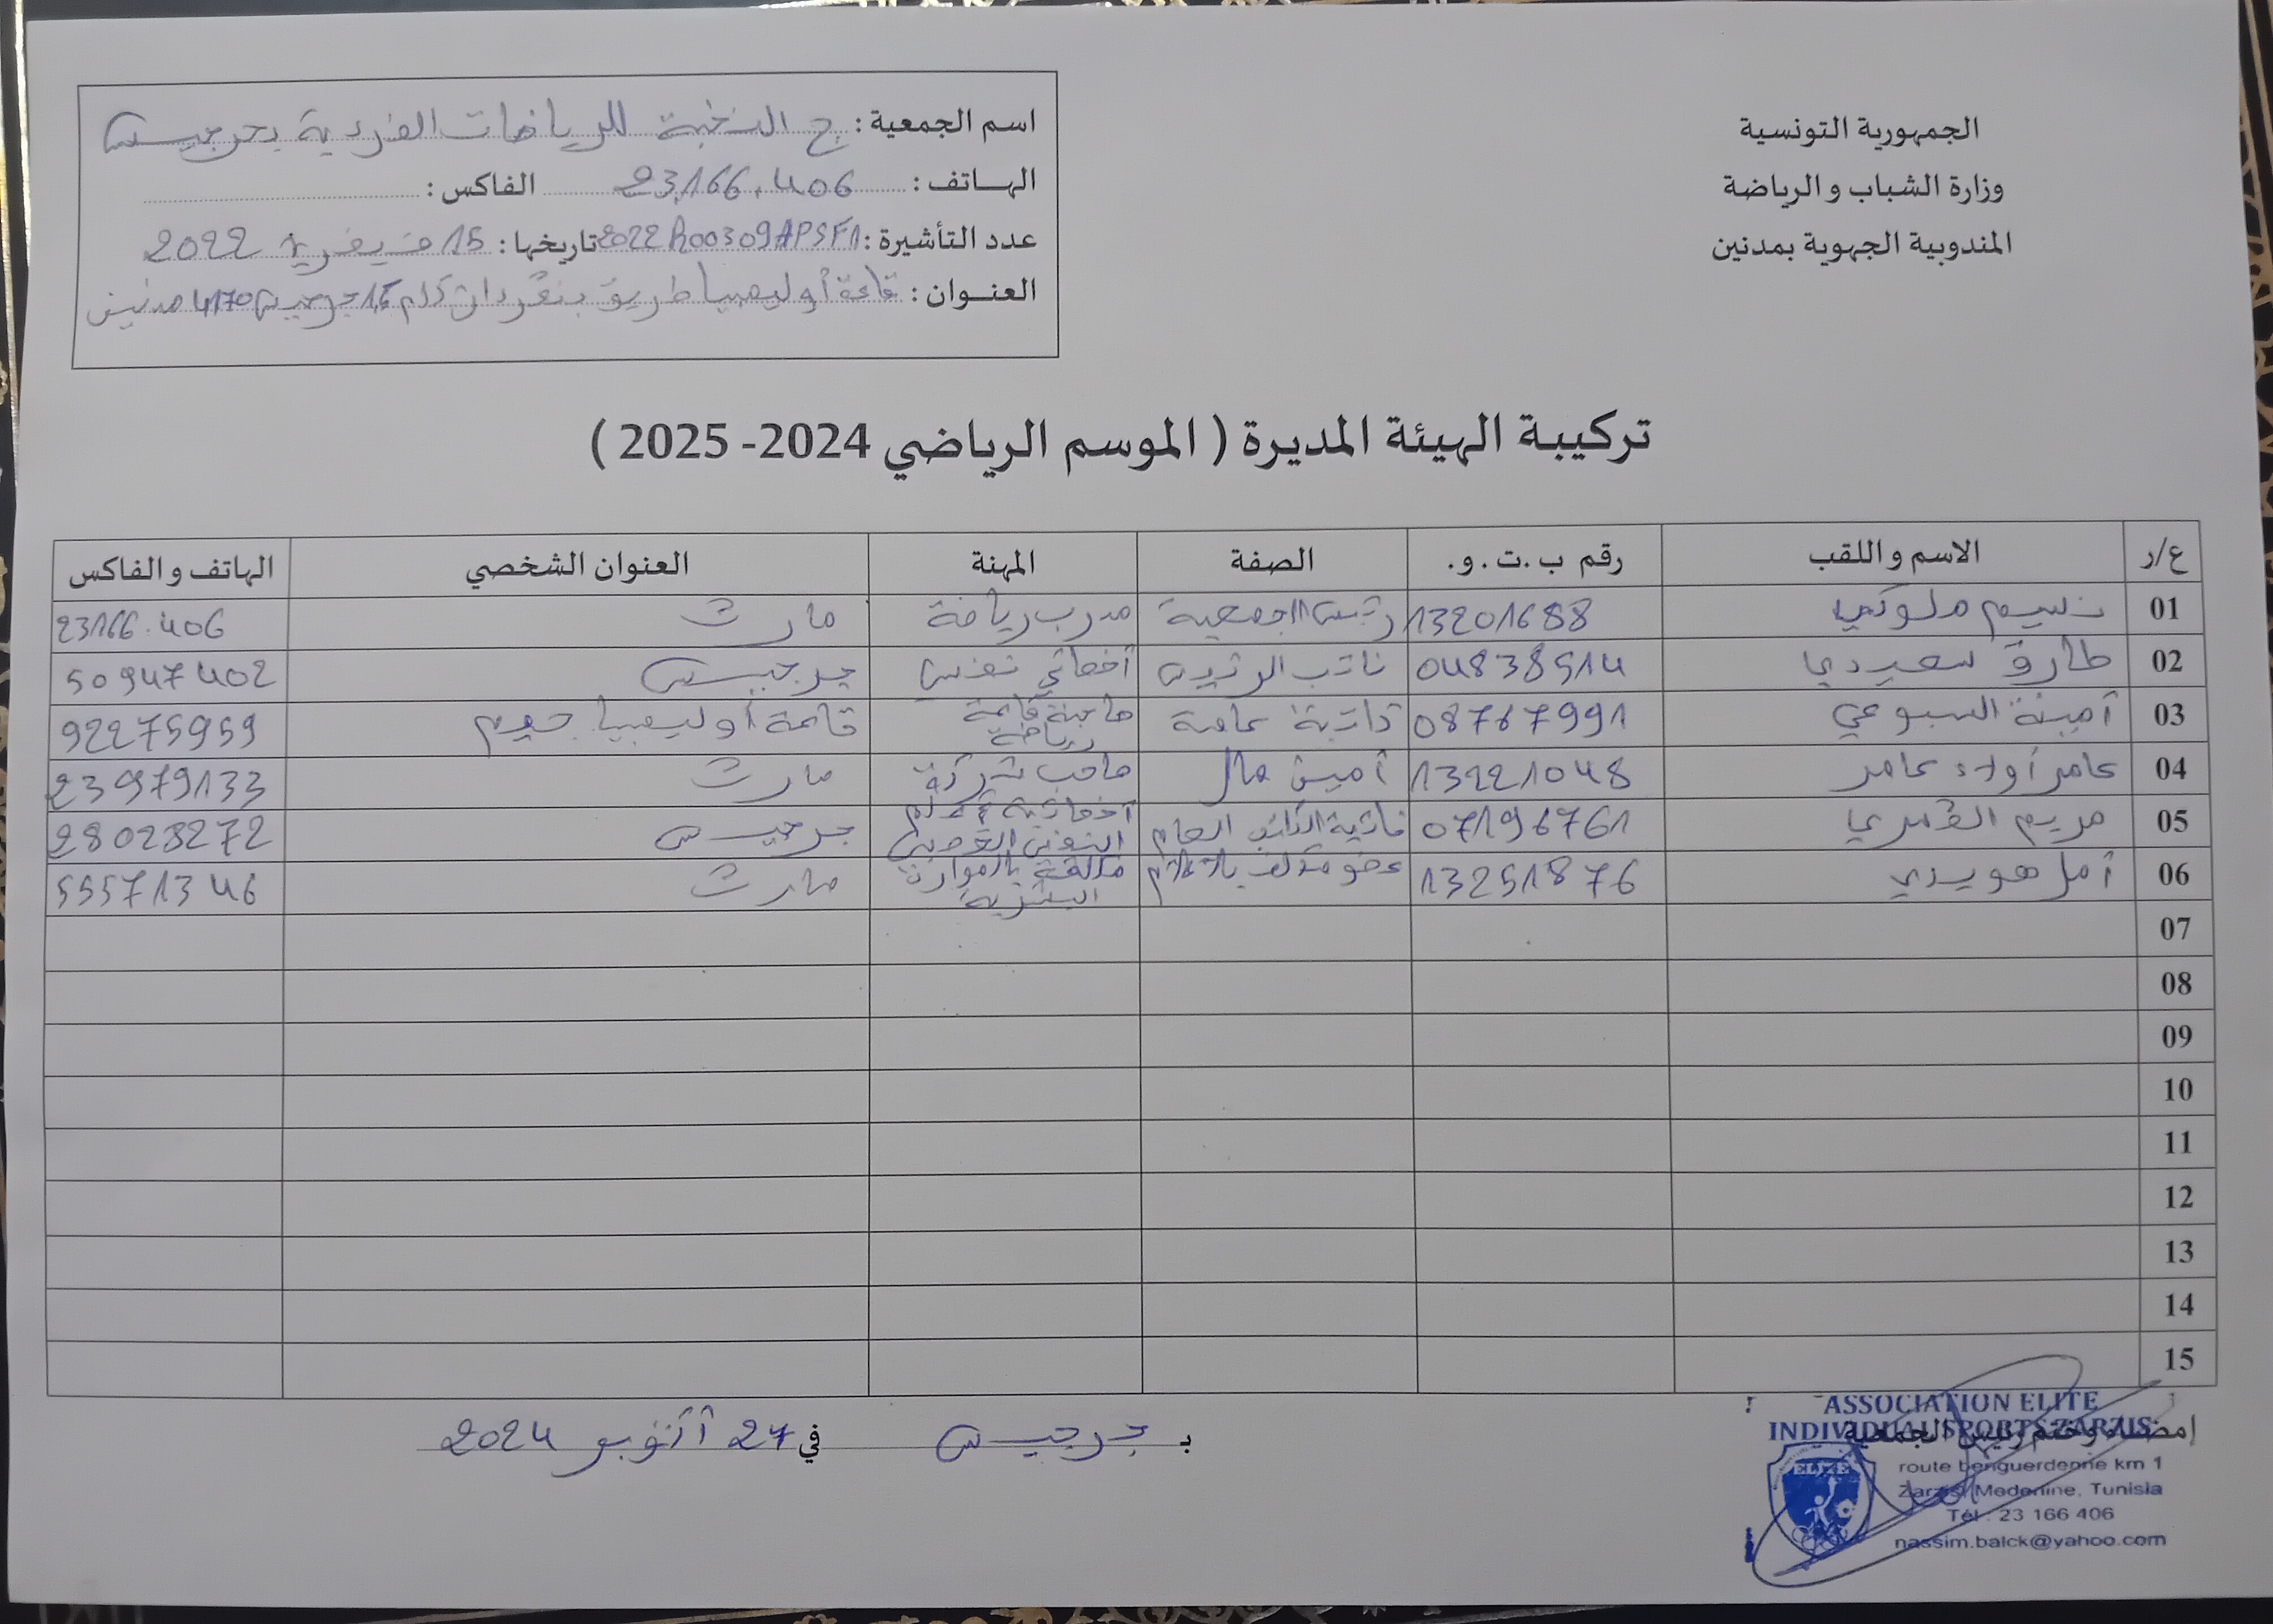 الجمهورية التونسية
وزارة الشباب والرياضة
المندوبية الجهوية بمدنين
اسم الجمعية: ج النخبة للرياضات الفردية بجرجيس
الهاتف: 23.166.406 الفاكس:
عدد التأشيرة: 2022R00309APSF1 تاريخها: 15 فيفري 2022
العنوان: قاعة أوليمبيا طريق بنقردان كلم 1 جرجيس 4170 مدنين
تركيبة الهيئة المديرة ( الموسم الرياضي 2024- 2025 )
ع/ر الاسم واللقب رقم ب.ت.و. الصفة المهنة العنوان الشخصي الهاتف والفاكس
01 نسيم ملوكي 13201688 رئيس الجمعية مدرب رياضة مارث 23166.406
02 طارق سعيدي 04838514 نائب الرئيس أخصائي نفسي جرجيس 50947402
03 آمينة السبوعي 08767991 كاتبة عامة صاحبة قاعة رياضة قاعة أوليمبيا جرجيس 92275959
04 عامر أولاد عامر 13221048 أمين مال صاحب شركة مارث 23979133
05 مريم القمري 07196761 نائبة الكاتب العام أخصائية جرجيس 28028272
06 أمل هويدي 13251876 عضو مكلف بالإعلام مكلفة بالموارد البشرية مارث 55571346
07
08
09
10
11
12
13
14
15
بـ جرجيس في 27 أكتوبر 2024
إمضاء وختم رئيس الجمعية
ASSOCIATION ELITE
INDIVIDUAL SPORTS ZARZIS
ELITE
route benguerdenne km 1
Zarzis/Medenine, Tunisia
Tél : 23 166 406
nassim.balck@yahoo.com